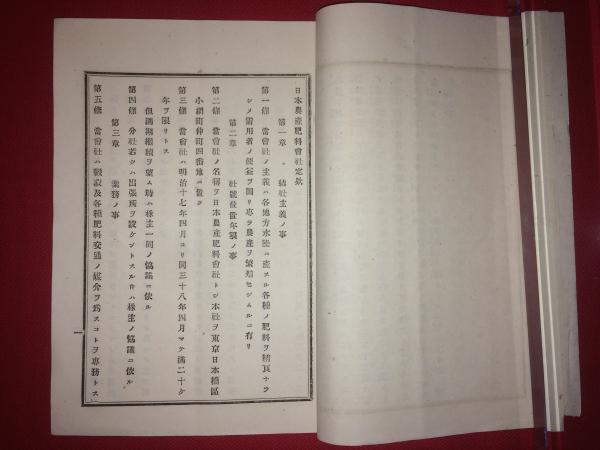 日本農產肥料會社定欵
第一章　結社主義ノ事
第一條　當會社ノ主義ハ各地方水陸ニ產スル各種ノ肥料ヲ精良ナラ
シメ需用者ノ便益ヲ圖リ專ラ農產ヲ繁殖セシムルニ有リ
第二章　社號位置年限ノ事
第二條　當會社ノ名稱ヲ日本農產肥料會社トシ本社ヲ東京日本橋區
小網町仲町四番地ニ置ク
第三條　當會社ハ明治十七年四月ヨリ同三十八年四月マテ滿二十ケ
年ヲ限リトス
但滿期繼續ヲ望ム時ハ株主一同ノ協議ニ依ル
第四條　分社若クハ出張所ヲ設ケントスル時ハ株主ノ協議ニ依ル
第三章　業務ノ事
第五條　當會社ハ穀菽及各種肥料交通ノ媒介ヲ爲スコトヲ專務トス
一